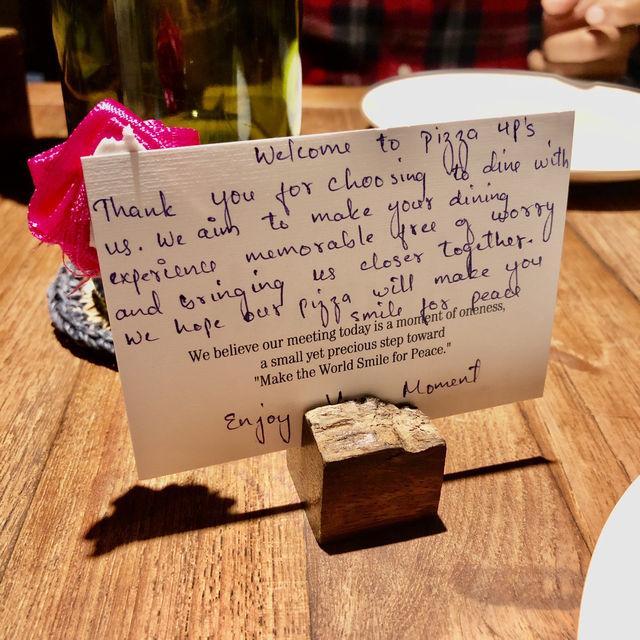 Welcome to Pizza 4P's
Thank you for choosing to dine with
us. We aim to make your dining
experience memorable free of worry
and bringing us closer together.
We hope our Pizza will make you
smile for peace
We believe our meeting today is a moment of oneness,
a small yet precious step toward
"Make the World Smile for Peace."
Enjoy Moment